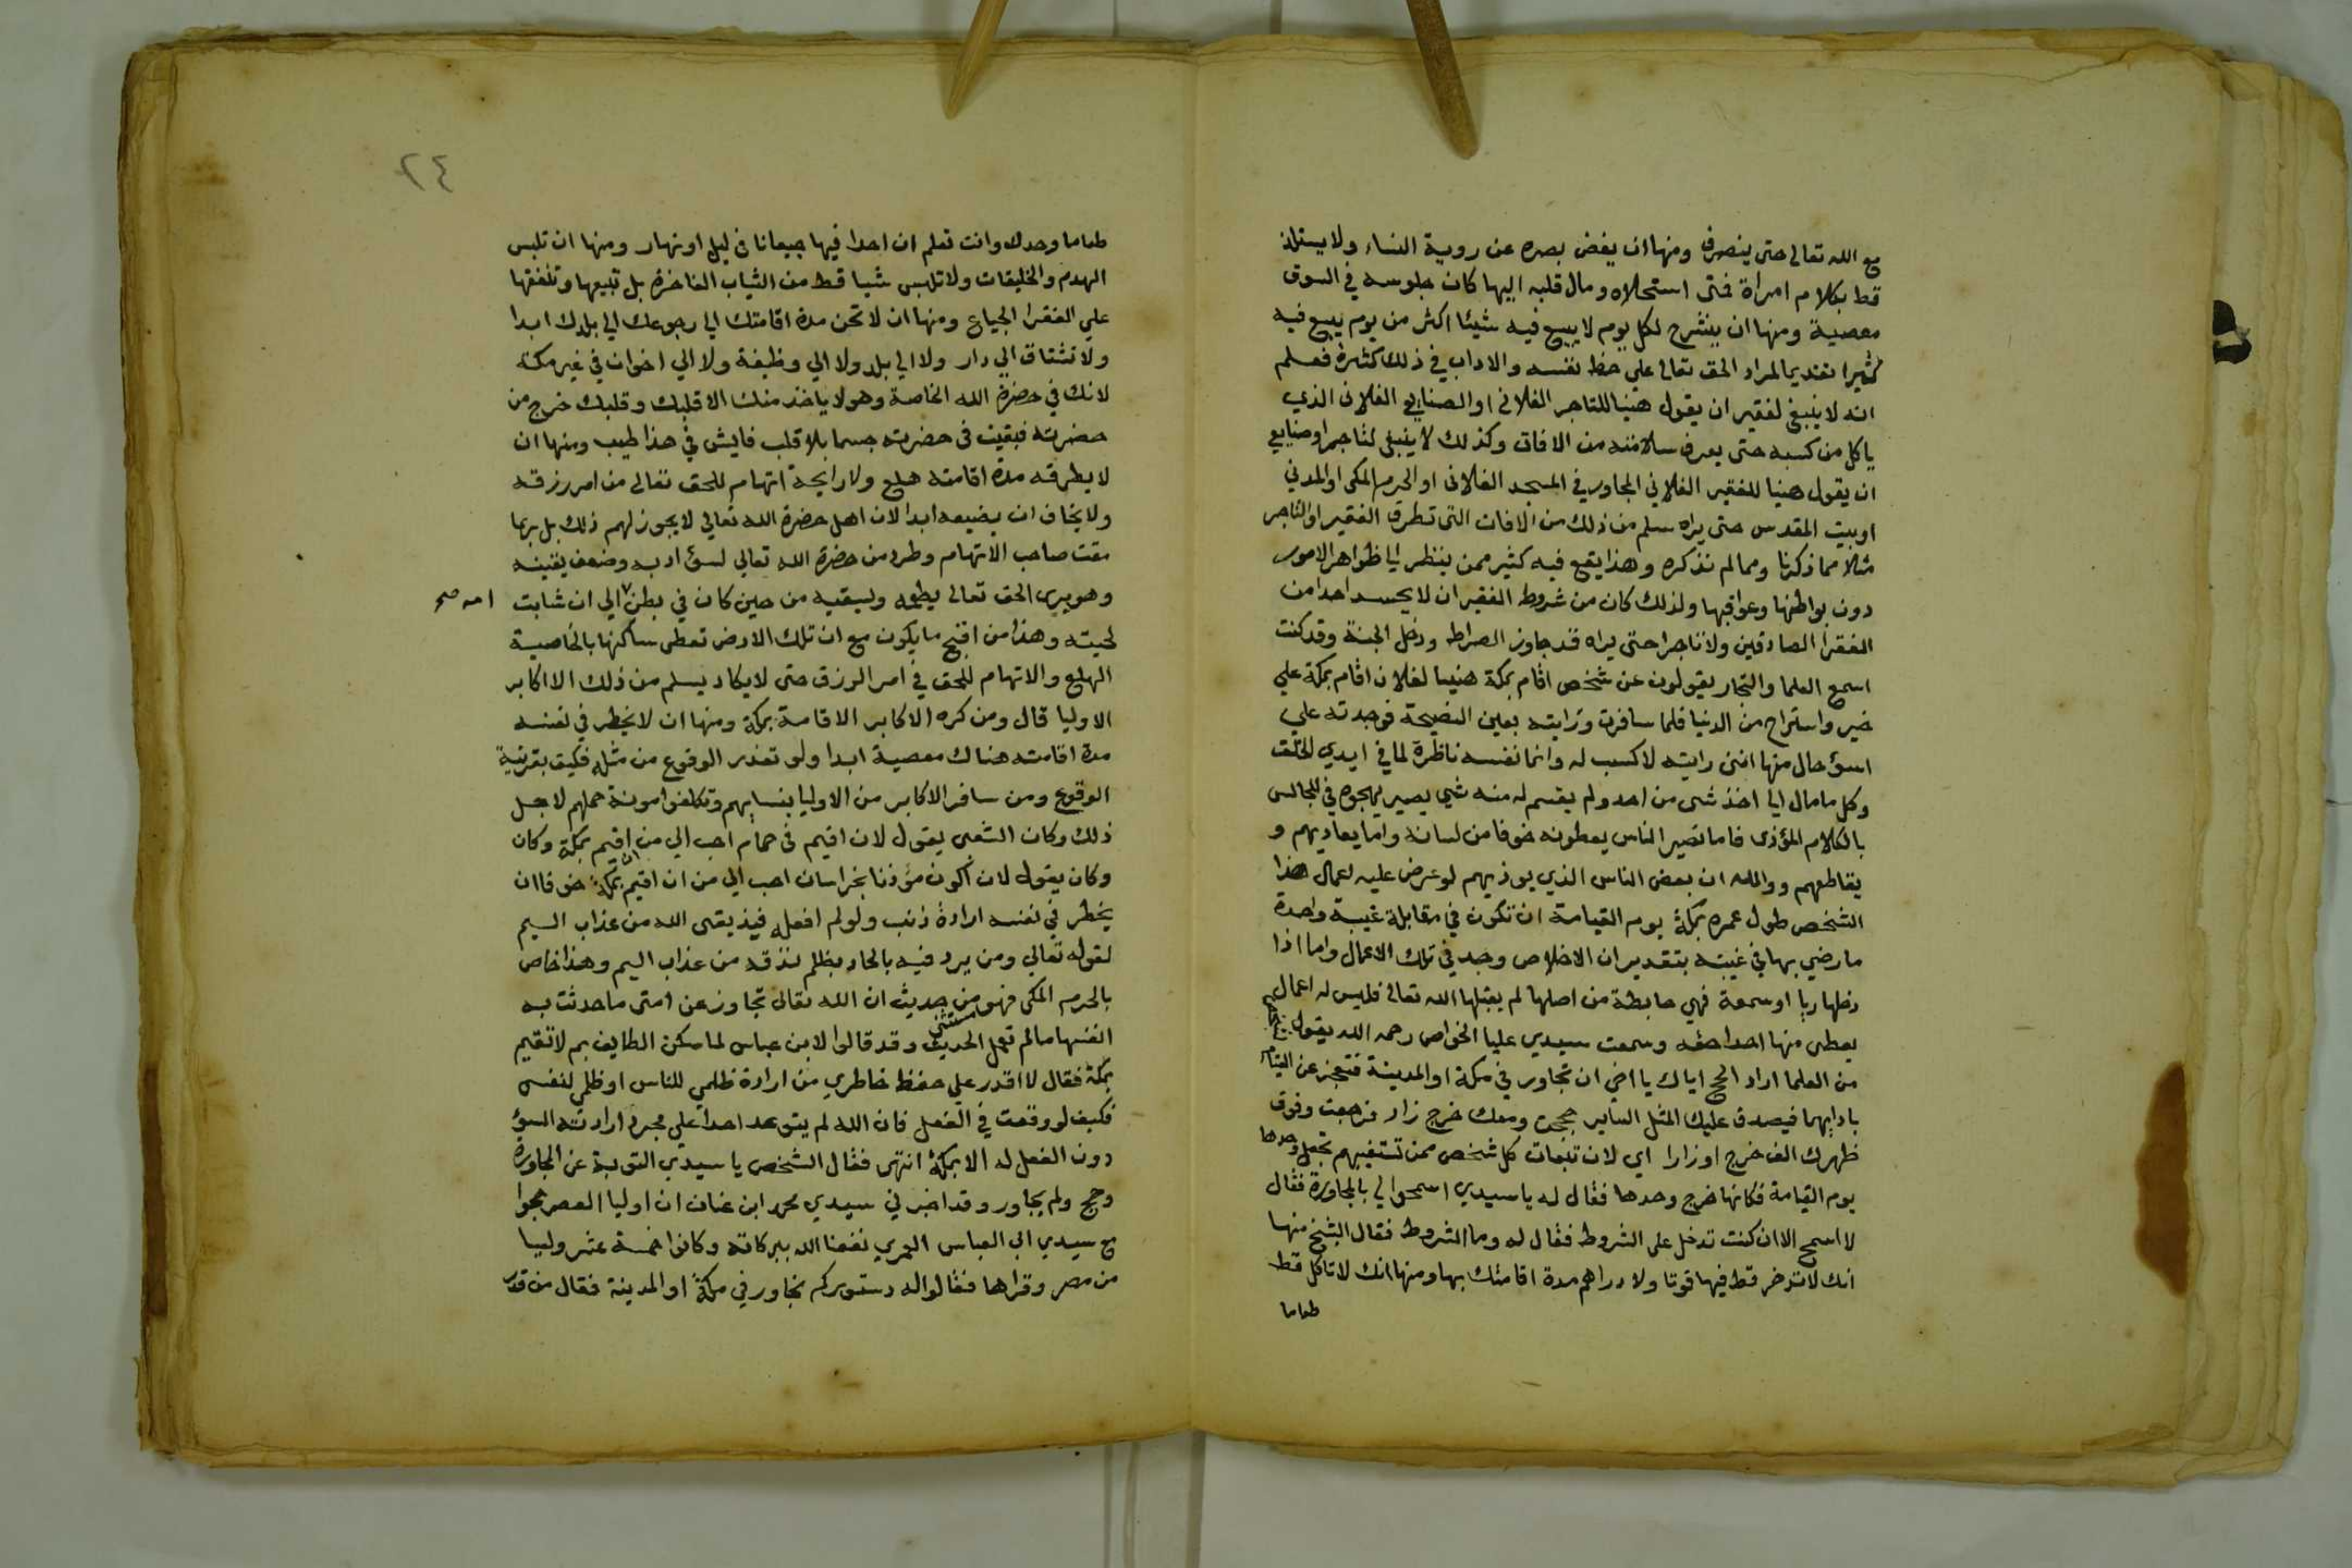 مع الله تعالى حتى ينصرف ومنها ان يغض بصره عن روية النساء ولا يستلذ
قط بكلام امراة فمتى استحلاه ومال قلبه اليها كان جلوسه في السوق
معصية ومنها ان ينشرح لكل يوم لا يبيع فيه شيئا اكثر من يوم يبيع فيه
كثيرا تقديما لمراد الحق تعالى علي حظ نفسه والاداب في ذلك كثيرة فعلم
انه لا ينبغي لفقير ان يقول هنيا للتاجر الفلاني او الصنايعي الفلاني الذي
ياكل من كسبه حتى يعرف سلامته من الافات وكذلك لا ينبغي لتاجر او صنايعي
ان يقول هنيا للفقير الفلاني المجاور في المسجد الفلاني او الحرم المكي او المدني
او بيت المقدس حتى يراه سلم من ذلك من الافات التي تطرق الفقير او التاجر
مثلا مما ذكرنا ومما لم نذكره وهذا يقع فيه كثير ممن ينظر الي ظواهر الامور
دون بواطنها وعواقبها ولذلك كان من شروط الفقير ان لا يحسد احدا من
الفقرا الصادقين ولا تاجرا حتى يراه قد جاوز الصراط ودخل الجنة وقد كنت
اسمع العلما والتجار يقولون عن شخص اقام بمكة هنيا لفلان اقام بمكة علي
خير واستراح من الدنيا فلما سافرت ورايته بعين النصيحة فوجدته علي
اسؤ حال منها انني رايته لا كسب له وانما نفسه ناظرة لما في ايدي الخلق
وكل ما مال الي اخذ شي من احد ولم يقسم له منه شي يصير يهجوه في المجالس
بالكلام المؤذي فاما تصير الناس يعطونه خوفا من لسانه واما يعاديهم و
يقاطعهم ووالله ان بعض الناس الذي يوذيهم لو عرض عليه اعمال هذا
الشخص طول عمره بمكة يوم القيامة ان تكون في مقابلة غيبة واحدة
ما رضي بها في غيبته بتقدير ان الاخلاص وجد في تلك الاعمال واما اذا
دخلها ريا او سمعة فهي حابطة من اصلها لم يقبلها الله تعالى فليس له اعمال
يعطي منها احدا حقه وسمعت سيدي عليا الخواص رحمه الله يقول
من العلما اراد الحج اياك يا اخي ان تجاور في مكة او المدينة فتعجز عن القيام
بادابهما فيصدق عليك المثل الساير حججت ومعك خرج زاد فرجعت وفوق
ظهرك الف خرج اوزارا اي لان تبعات كل شخص ممن تستغيبهم تجعل وحدها
يوم القيامة فكانها خرج وحدها فقال له يا سيدي اسمحوا لي بالمجاورة فقال
لا اسمح الا ان كنت تدخل على الشروط فقال له وما الشروط فقال الشيخ منها
انك لا تدخر قط فيها قوتا ولا دراهم مدة اقامتك بها ومنها انك لا تاكل قط
طعاما
٢٤
طعاما وحدك وانت تعلم ان احدا فيها جيعانا في ليل او نهار ومنها ان تلبس
الهدم والخليقات ولا تلبس شيا قط من الثياب الفاخرة بل تبيعها وتنفقها
علي الفقرا الجياع ومنها ان لا تحن مدة اقامتك الي رجوعك الي بلدك ابدا
ولا تشتاق الي دار ولا الي بلد ولا الي وظيفة ولا الي اخوان في غير مكة
لانك في حضرة الله الخاصة وهو لا ياخذ منك الا قلبك وقلبك خرج من
حضرته فبقيت في حضرته جسما بلا قلب فايش في هذا طيب ومنها ان
لا يطرقه مدة اقامته هلع ولا رايحة اتهام للحق تعالى من امر رزقه
ولا يخاف ان يضيعه ابدا لان اهل حضرة الله تعالي لا يجوز لهم ذلك بل ربما
مقت صاحب الاتهام وطرد من حضرة الله تعالي لسؤ ادبه وضعف يقينه
وهو يري الحق تعالى يطعمه ويسقيه من حين كان في بطن الي ان شابت
امه صح
لحيته وهذا من اقبح ما يكون مع ان تلك الارض تعطي ساكنها بالخاصية
الهلع والاتهام للحق في امر الرزق حتى لا يكاد يسلم من ذلك الا اكابر
الاوليا قال ومن كره الاكابر الاقامة بمكة ومنها ان لا يخطر في نفسه
مدة اقامته هناك معصية ابدا ولو تعذر الوقوع من مثله فكيف بقريبة
الوقوع ومن سافر الاكابر من الاوليا بنسايهم وتكلفوا مونة حملهم لاجل
ذلك وكان الشعبي يقول لان اقيم في حمام احب الي من ان اقيم بمكة وكان
وكان يقول لان اكون مؤذنا بخراسان احب الي من ان اقيم بمكة خوفا ان
يخطر في نفسه ارادة ذنب ولو لم افعله فيذيقني الله من عذاب اليم
لقوله تعالي ومن يرد فيه بالحاد بظلم نذقه من عذاب اليم وهذا خاص
بالحرم المكي فهو مستثني من حديث ان الله تعالى تجاوز عن امتي ما حدثت به
انفسها ما لم تعمل الحديث وقد قالوا لابن عباس لما سكن الطايف لم لا تقيم
بمكة فقال لا اقدر علي حفظ خاطري من ارادة ظلمي للناس او ظلمي لنفسي
فكيف لو وقعت في الفعل فان الله لم يتوعد احدا علي مجرد ارادته السؤ
دون الفعل له الا بمكة انتهى فقال الشخص يا سيدي التوبة عن المجاورة
وحج ولم يجاور وقد اخبرني سيدي محمد ابن عنان ان اوليا العصر حجوا
مع سيدي ابي العباس الغمري نفعنا الله ببركاته وكانوا خمسة عشر وليا
من مصر وقراها فقالوا له دستوركم نجاور في مكة او المدينة فقال من قدر